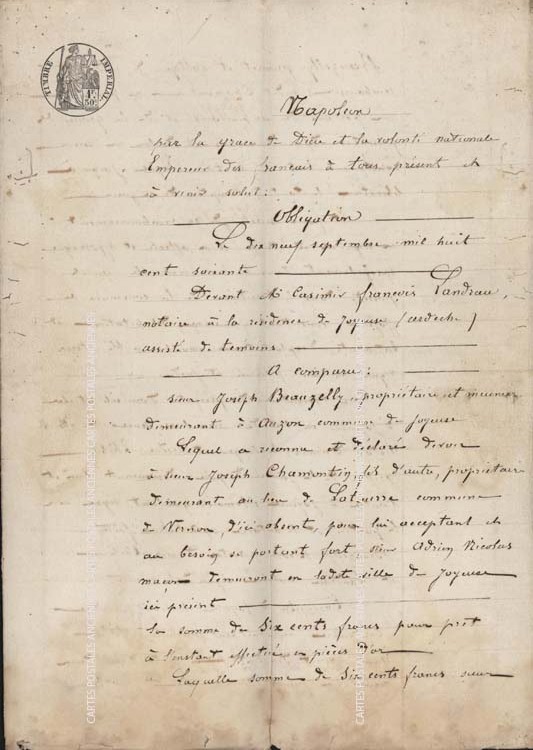 TIMBRE IMPERIAL
1F.
50c.
Napoleon
par la grace de Dieu et la volonté nationale
Empereur des français à tous présent et
à venir salut :
Obligation
Le dix neuf septembre mil huit
cent soixante
Devant Me Casimir françois Landrau,
notaire à la residence de Joyeuse (ardeche)
assisté de temoins
A comparu :
sieur Joseph Beauzelly proprietaire et meunier
demeurant à Auzon commune de Joyeuse
Lequel a reconnu et déclaré devoir
à sieur Joseph Chamontin, fils d'autre, propriétaire
demeurant au lieu de commune
de Vernon, d'ici absent, pour lui acceptant et
au besoin se portant fort, sieur Adrien Nicolas
maçon demeurant en ladite ville de Joyeuse
ici présent
la somme de Six cents francs pour prêt
à l'instant effectué en pièces d'or
Laquelle somme de Six cents francs sieur
CARTES POSTALES ANCIENNES CARTES POSTALES ANCIENNES